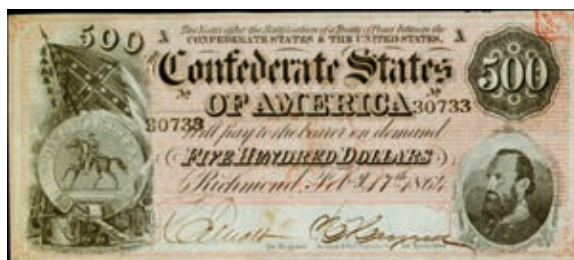 500 A Two Years after the Ratification of a Treaty of Peace between the A
CONFEDERATE STATES & THE UNITED STATES,
Confederate States 500
No No
OF AMERICA 30733
30733
Will pay to the bearer on demand
FIVE HUNDRED DOLLARS
Richmond, Feb. 17th 1864
for Register for Treasurer